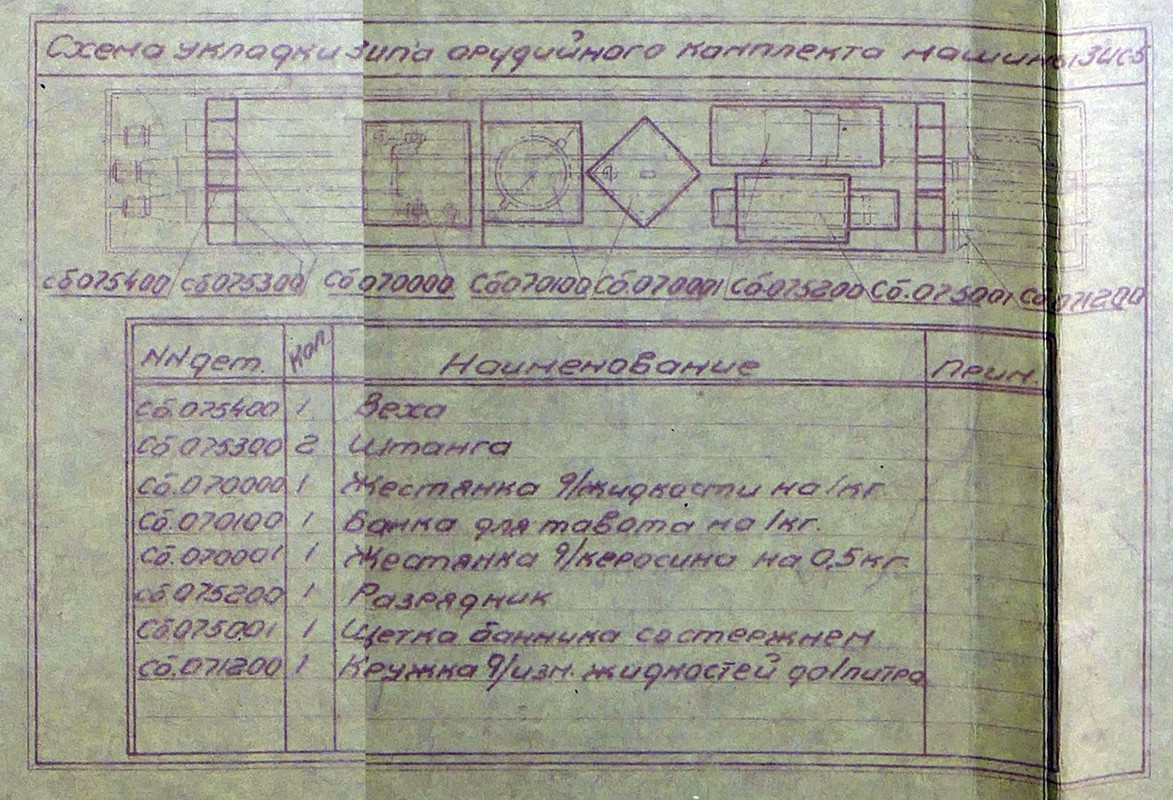 Схема укладки зипа орудийного комплекта машины ЗИС5
сб075400 сб075300 Сб070000 Сб070100 Сб.070001 Сб.075200 Сб.075001 Сб071200
NNдет. Кол. Наименование Прим.
Сб.075400 1 Веха
Сб.075300 2 Штанга
Сб.070000 1 Жестянка д/жидкости на 1кг
Сб.070100 1 Банка для тавота на 1кг.
Сб.070001 1 Жестянка д/керосина на 0,5кг.
сб.075200 1 Разрядник
Сб.075001 1 Щетка банника со стержнем
Сб.071200 1 Кружка д/изм. жидкостей до1литра